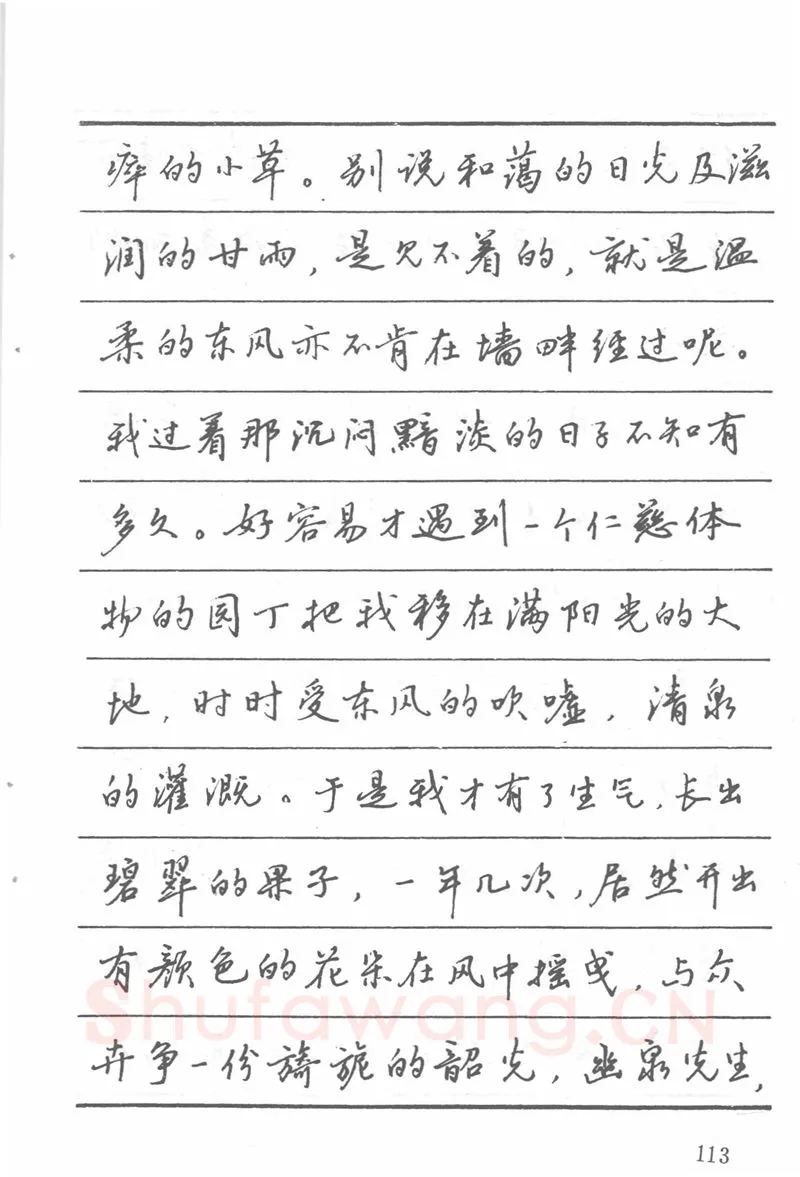 瘁的小草。别说和蔼的日光及滋
润的甘雨，是见不着的，就是温
柔的东风亦不肯在墙畔经过呢。
我过着那沉闷黯淡的日子不知有
多久。好容易才遇到一个仁慈体
物的园丁把我移在满阳光的大
地，时时受东风的吹嘘，清泉
的灌溉。于是我才有了生气，长出
碧翠的果子，一年几次，居然开出
有颜色的花朵在风中摇曳，与众
卉争一份旖旎的韶光，幽泉先生，
Shufawang.CN
113